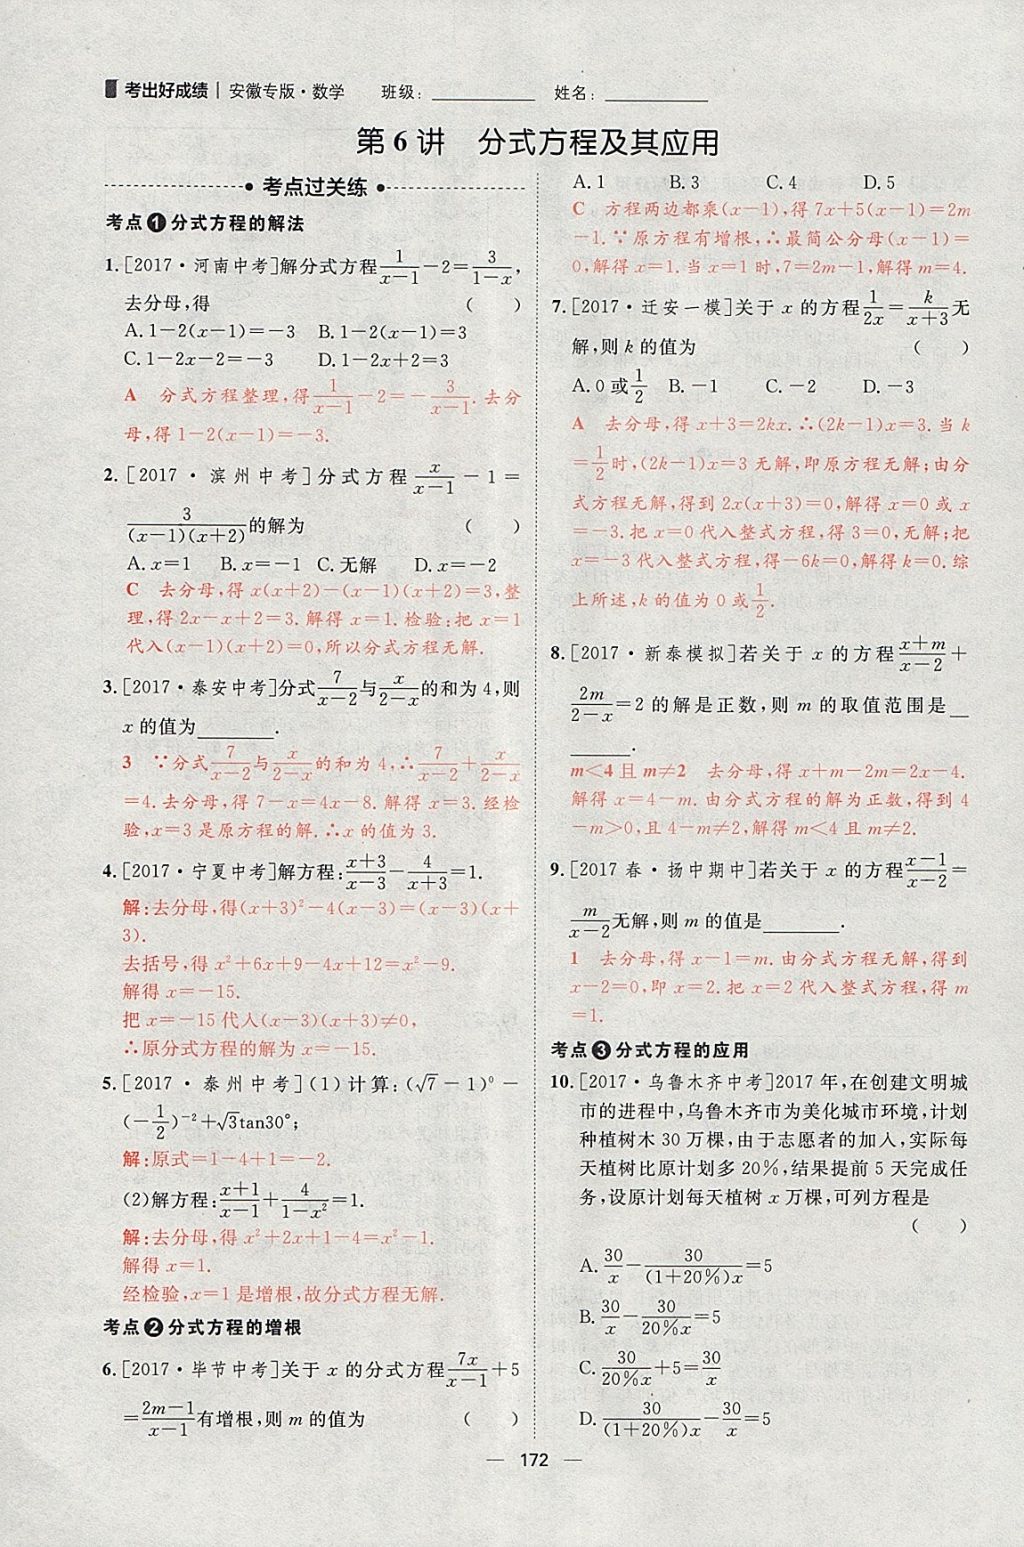 考出好成绩 | 安徽专版·数学 班级:__________ 姓名:__________
第6讲 分式方程及其应用
考点过关练
考点❶分式方程的解法
1.[2017·河南中考]解分式方程\frac{1}{x-1}-2=\frac{3}{1-x},
去分母,得 ( )
A.1-2(x-1)=-3 B.1-2(x-1)=3
C.1-2x-2=-3 D.1-2x+2=3
A 分式方程整理,得\frac{1}{x-1}-2=-\frac{3}{x-1}.去分
母,得1-2(x-1)=-3.
2.[2017·滨州中考]分式方程\frac{x}{x-1}-1=
\frac{3}{(x-1)(x+2)}的解为 ( )
A.x=1 B.x=-1 C.无解 D.x=-2
C 去分母,得x(x+2)-(x-1)(x+2)=3,整
理,得2x-x+2=3.解得x=1.检验:把x=1
代入(x-1)(x+2)=0,所以分式方程无解.
3.[2017·泰安中考]分式\frac{7}{x-2}与\frac{x}{2-x}的和为4,则
x的值为________.
3 ∵分式\frac{7}{x-2}与\frac{x}{2-x}的和为4,∴\frac{7}{x-2}+\frac{x}{2-x}
=4.去分母,得7-x=4x-8.解得x=3.经检
验,x=3是原方程的解.∴x的值为3.
4.[2017·宁夏中考]解方程:\frac{x+3}{x-3}-\frac{4}{x+3}=1.
解:去分母,得(x+3)²-4(x-3)=(x-3)(x+
3).
去括号,得x²+6x+9-4x+12=x²-9.
解得x=-15.
把x=-15代人(x-3)(x+3)≠0,
∴原分式方程的解为x=-15.
5.[2017·泰州中考](1)计算:(√7-1)⁰-
(-\frac{1}{2})⁻²+√3tan30°;
解:原式=1-4+1=-2.
(2)解方程:\frac{x+1}{x-1}+\frac{4}{1-x²}=1.
解:去分母,得x²+2x+1-4=x²-1.
解得x=1.
经检验,x=1是增根,故分式方程无解.
考点❷分式方程的增根
6.[2017·毕节中考]关于x的分式方程\frac{7x}{x-1}+5
=\frac{2m-1}{x-1}有增根,则m的值为 ( )
A.1 B.3 C.4 D.5
C 方程两边都乘(x-1),得7x+5(x-1)=2m
-1.∵原方程有增根,∴最简公分母(x-1)=
0,解得x=1.当x=1时,7=2m-1,解得m=4.
7.[2017·迁安一模]关于x的方程\frac{1}{2x}=\frac{k}{x+3}无
解,则k的值为 ( )
A.0或\frac{1}{2} B.-1 C.-2 D.-3
A 去分母,得x+3=2kx.∴(2k-1)x=3.当k
=\frac{1}{2}时,(2k-1)x=3无解,即原方程无解;由分
式方程无解,得到2x(x+3)=0,解得x=0或x
=-3.把x=0代入整式方程,得3=0,无解;把
x=-3代入整式方程,得-6k=0,解得k=0.综
上所述,k的值为0或\frac{1}{2}.
8.[2017·新泰模拟]若关于x的方程\frac{x+m}{x-2}+
\frac{2m}{2-x}=2的解是正数,则m的取值范围是__
______.
m<4且m≠2 去分母,得x+m-2m=2x-4.
解得x=4-m.由分式方程的解为正数,得到4
-m>0,且4-m≠2,解得m<4且m≠2.
9.[2017春·扬中期中]若关于x的方程\frac{x-1}{x-2}=
\frac{m}{x-2}无解,则m的值是________.
1 去分母,得x-1=m.由分式方程无解,得到
x-2=0,即x=2.把x=2代入整式方程,得m
=1.
考点❸分式方程的应用
10.[2017·乌鲁木齐中考]2017年,在创建文明城
市的进程中,乌鲁木齐市为美化城市环境,计划
种植树木30万棵,由于志愿者的加人,实际每
天植树比原计划多20%,结果提前5天完成任
务,设原计划每天植树x万棵,可列方程是
( )
A.\frac{30}{x}-\frac{30}{(1+20%)x}=5
B.\frac{30}{x}-\frac{30}{20%x}=5
C.\frac{30}{20%x}+5=\frac{30}{x}
D.\frac{30}{(1+20%)x}-\frac{30}{x}=5
— 172 —